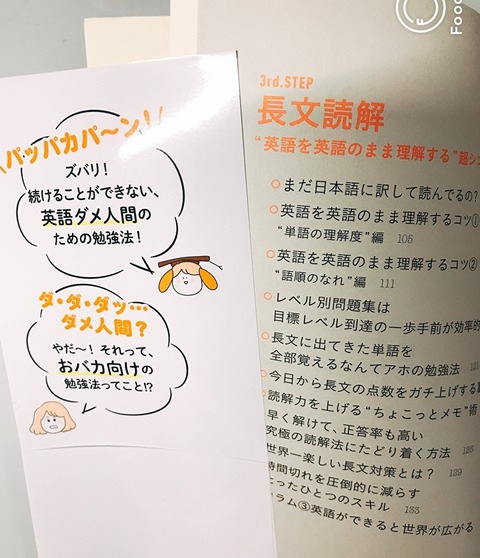 パッパカパ〜ン！
ズバリ！
続けることができない、
英語ダメ人間の
ための勉強法！
ダ・ダ・ダッ…
ダメ人間？
やだ〜！それって、
おバカ向けの
勉強法ってこと!?
Food
3rd.STEP
長文読解
“英語を英語のまま理解する”超シ
まだ日本語に訳して読んでるの？
英語を英語のまま理解するコツ①
“単語の理解度”編 105
英語を英語のまま理解するコツ②
“語順のなれ”編 111
レベル別問題集は
目標レベル到達の一歩手前が効率的
長文に出てきた単語を
全部覚えるなんてアホの勉強法
今日から長文の点数をガチ上げする
読解力を上げる“ちょこっとメモ”術
早く解けて、正答率も高い
究極の読解法にたどり着く方法 125
世界一楽しい長文対策とは？ 129
時間切れを圧倒的に減らす
たったひとつのスキル 133
ラム③英語ができると世界が広がる